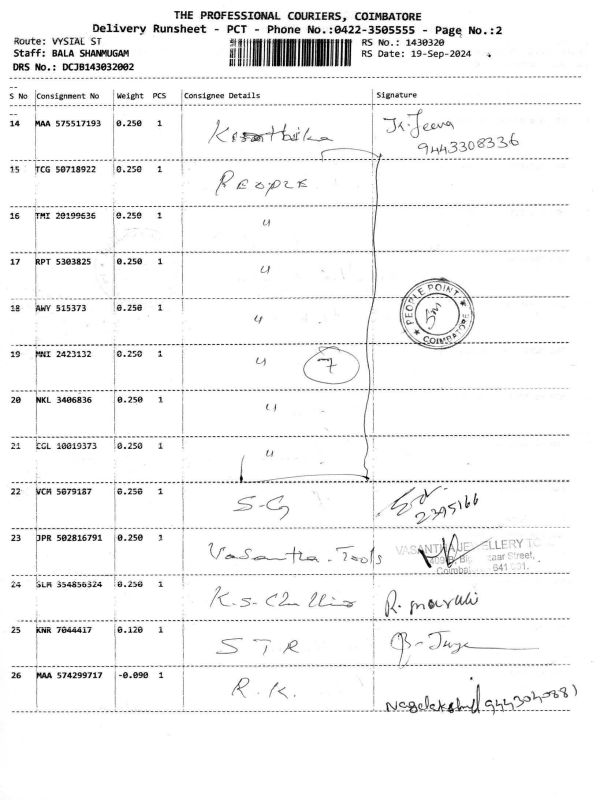 THE PROFESSIONAL COURIERS, COIMBATORE
Delivery Runsheet - PCT - Phone No.:0422-3505555 - Page No.:2
Route: VYSIAL ST RS No.: 1430320
Staff: BALA SHANMUGAM RS Date: 19-Sep-2024
DRS No.: DCJB143032002
S No Consignment No Weight PCS Consignee Details Signature
14 MAA 575517193 0.250 1
9443308336
15 TCG 50718922 0.250 1 PEOPLE
16 TMI 20199636 0.250 1 "
17 RPT 5303825 0.250 1 "
18 AWY 515373 0.250 1 "
PEOPLE POINT
COIMBATORE
19 MNI 2423132 0.250 1 " 7
20 NKL 3406836 0.250 1 "
21 CGL 10019373 0.250 1 "
22 VCM 5079187 0.250 1 S-G
2395166
23 JPR 502816791 0.250 1 Vasantha-Tools
Street,
24 SLM 354856324 0.250 1 K.S.
25 KNR 7044417 0.120 1 STR
26 MAA 574299717 -0.090 1 R.K.